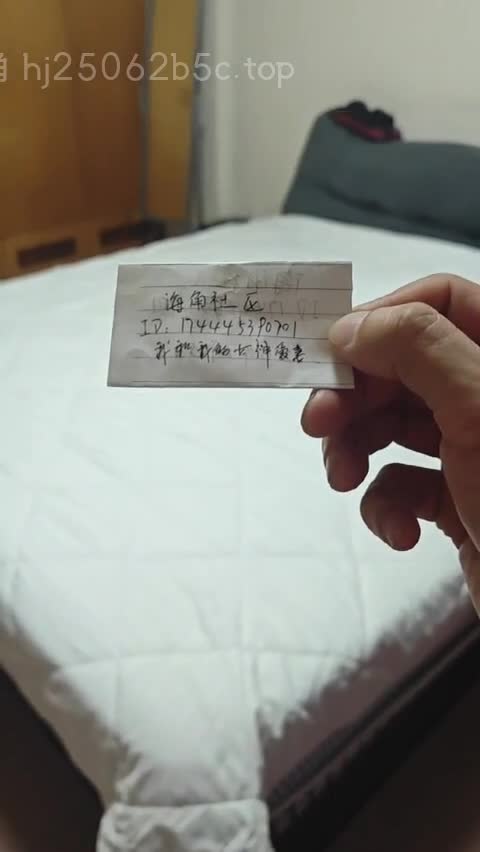 hj25062b5c.top
海角社区
ID: 174445390701
我和我的